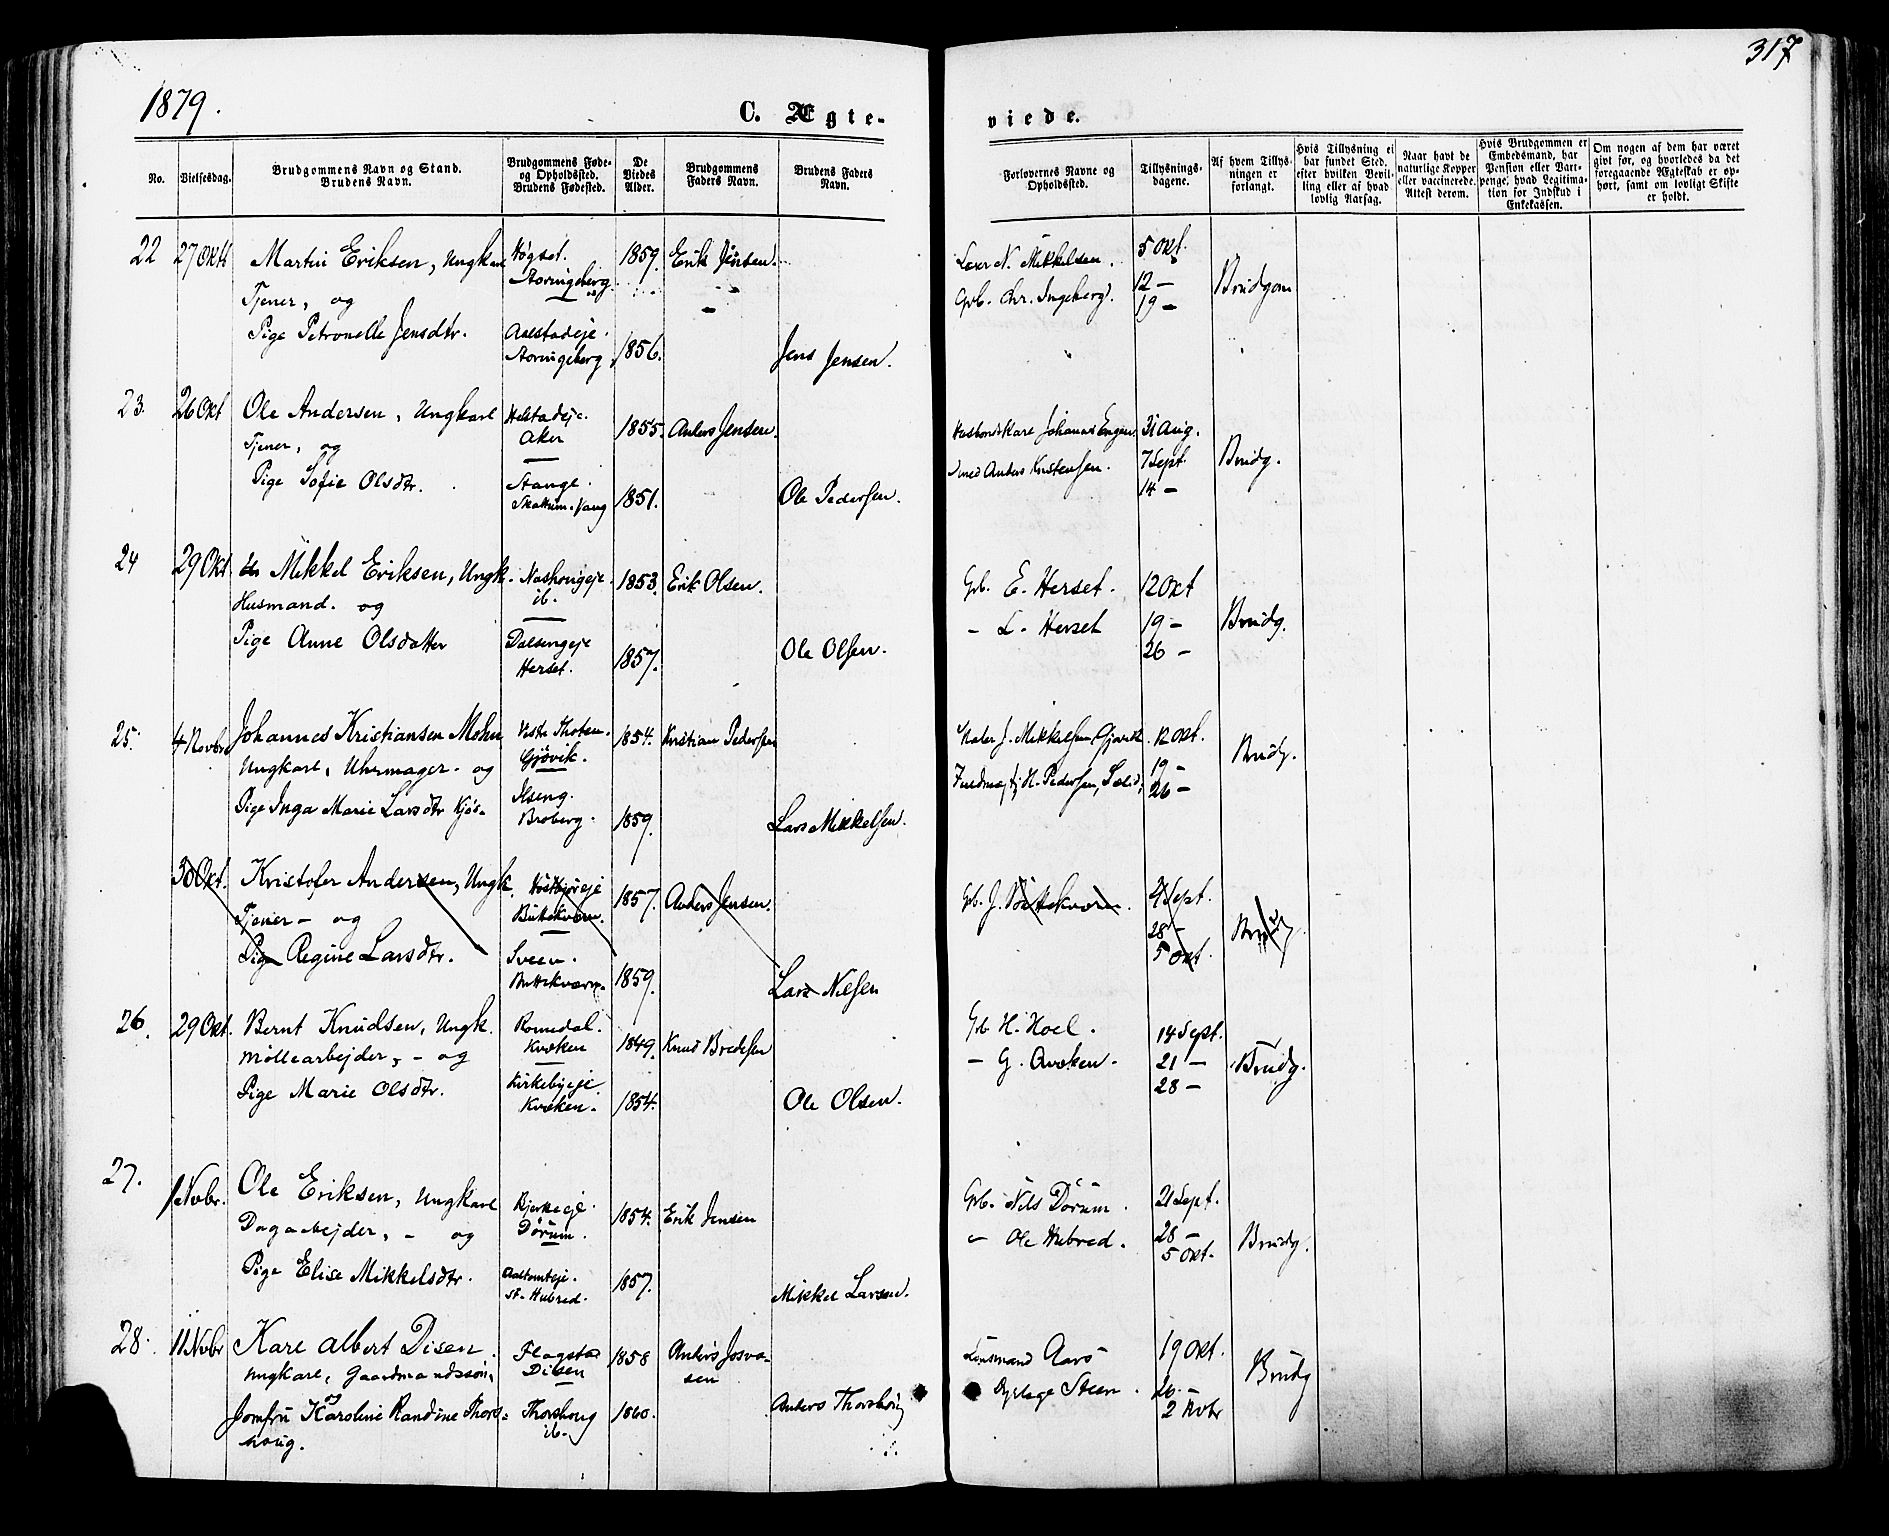 317
1879.
C. Ægte-
viede.
No.
Vielsesdag.
Brudgommens Navn og Stand.
Brudens Navn.
Brudgommens Føde-
og Opholdssted.
Brudens Fødested.
De
Viedes
Alder.
Brudgommens
Faders Navn.
Brudens Faders
Navn.
Forlovernes Navne og
Opholdssted.
Tillysnings-
dagene.
Af hvem Tillys-
ningen er
forlangt.
Hvis Tillysning ei
har fundet Sted,
efter hvilken Bevil-
ling eller af hvad
lovlig Aarsag.
Naar havt de
naturlige Kopper
eller vaccinerede.
Attest derom.
Hvis Brudgommen er
Embedsmand, har
Pension eller Vart-
penge, hvad Legitima-
tion for Indskud i
Enkekassen.
Om nogen af dem har været
givt før, og hvorledes da det
foregaaende Ægteskab er op-
hørt, samt om lovligt Skifte
er holdt.
22 27 Okt Martin Eriksen, Ungkarl Høgset. 1859. Erik Jensen. N. Mikkelsen. 5 Okt.
Tjener, og Aorningeberg. Grb. Chr. Ingeberg. 12 — Brudgom
19 —
Pige Petronelle Jensdtr. Aalstadeje. Aorningeberg 1856. Jens Jensen.
23. 26 Okt Ole Andersen, Ungkarl Helstadeje. 1855. Anders Jensen. Johannes Engen 31 Aug.
Tjener, og Aker Anders Kristensen. 7 Sept. Brudg.
Pige Sofie Olsdtr. Stange. 1851. Ole Pedersen. 14 —
Skattum. Vang
24 29 Okt. Mikkel Eriksen, Ungk. Nashougeje. 1853. Erik Olsen. Grb. E. Herset. 12 Okt
Husmand. og ib. — L. Herset 19 — Brudg.
Pige Anne Olsdatter Dalsengeje 1857. Ole Olsen. 26 —
Herset.
25. 4 Novbr Johannes Kristiansen Mohn Vestre Thoten. 1854. Kristian Pedersen J. Mikkelsen, Gjøvik. 12 Okt.
Ungkarl, Uhrmager. og Gjøvik. 19 — Brudg.
Pige Inga Marie Larsdtr Kjøs- Ilseng. 1859. Lars Mikkelsen. H. Pedersen, Sælid, 26 —
Broberg.
30 Okt. Kristofer Andersen, Ungk. 1857. Anders Jensen. Grb. J. Sept.
Tjener — og 28 — Brudg
Pige Regine Larsdtr. Sveen. 1859. Lars Nilsen 5 Okt.
26. 29 Okt. Bernt Knudsen, Ungk. Romedal. 1849. Knud Bredesen Grb H. Hoel. 14 Sept.
Møllearbejder, — og Kvæken — G. Qvæken. 21 — Brudg.
Pige Marie Olsdtr. Kirkebyeje 1854. Ole Olsen. 28 —
Kvæken.
27. 1 Novbr. Ole Eriksen, Ungkarl Bjerkeeje. 1854. Erik Jensen Grb. Nils Dørum. 21 Sept.
Dagarbejder, — og Dørum. — Ole Hubred. 28 — Brudg.
Pige Elise Mikkelsdtr. 1857. Mikkel Larsen. 5 Okt.
St. Hubred.
28. 11 Novbr Karl Albert Disen. Flagstad 1858 Anders Josva- Lensmand Aars 19 Okt.
Ungkarl, Gaardmandssøn, Disen sen Steen. 26. — Brudg
og
Jomfru Karoline Randine Thors- Thorshoug 1860. Anders Thorshoug 2 Novbr
houg. ib.